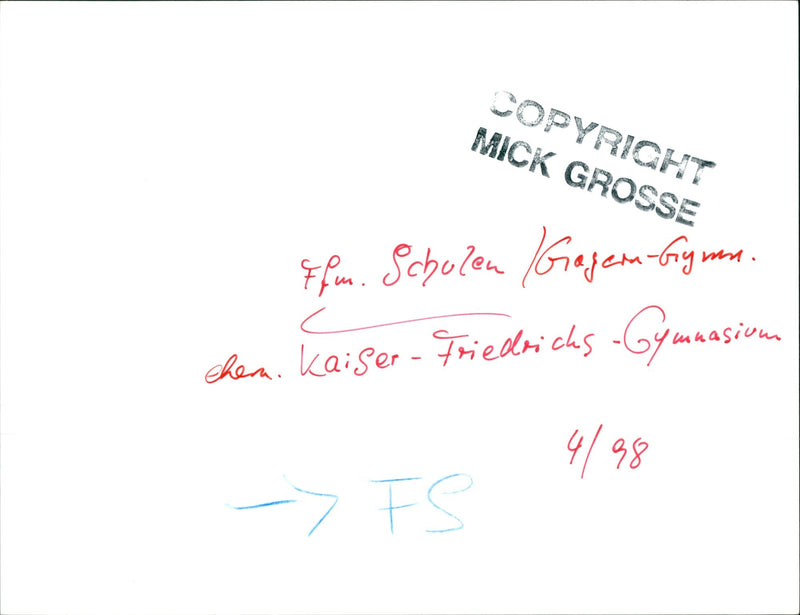 COPYRIGHT
MICK GROSSE
Ffm. Schulen / Gagern-Gymn.
ehem. Kaiser-Friedrichs-Gymnasium
4/98
→ FS